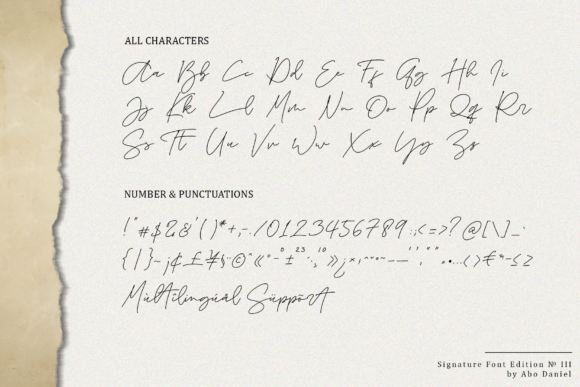 ALL CHARACTERS
Aa Bb Cc Dd Ee Ff Gg Hh Ii
Jj Kk Ll Mm Nn Oo Pp Qq Rr
Ss Tt Uu Vv Ww Xx Yy Zz
NUMBER & PUNCTUATIONS
!"#$%&'()*+,-./0123456789:;<=>?@[\]_
{|}~¡¢£¥
Múltilinguál Süppört
Signature Font Edition № III
by Abo Daniel